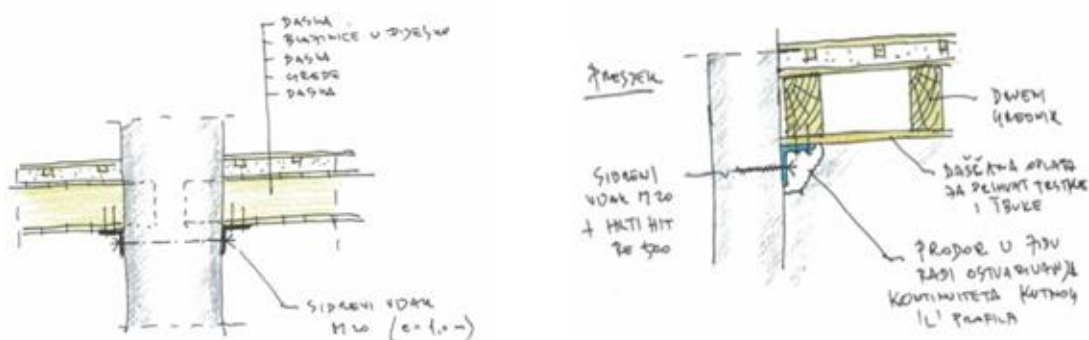 DASKA
BLAZINICE U PIJESKU
DASKA
GREDE
DASKA
SIDRENI VIJAK
M20 (e=1,0m)
PRESJEK
SIDRENI
VIJAK M20
+ HILTI HIT
RE 500
DRVENI
GREDNIK
DAŠČANA OPLATA
ZA PRIHVAT TRSTIKE
I ŽBUKE
PRODOR U ZIDU
RADI OSTVARIVANJA
KONTINUITETA KUTNOG
'L' PROFILA